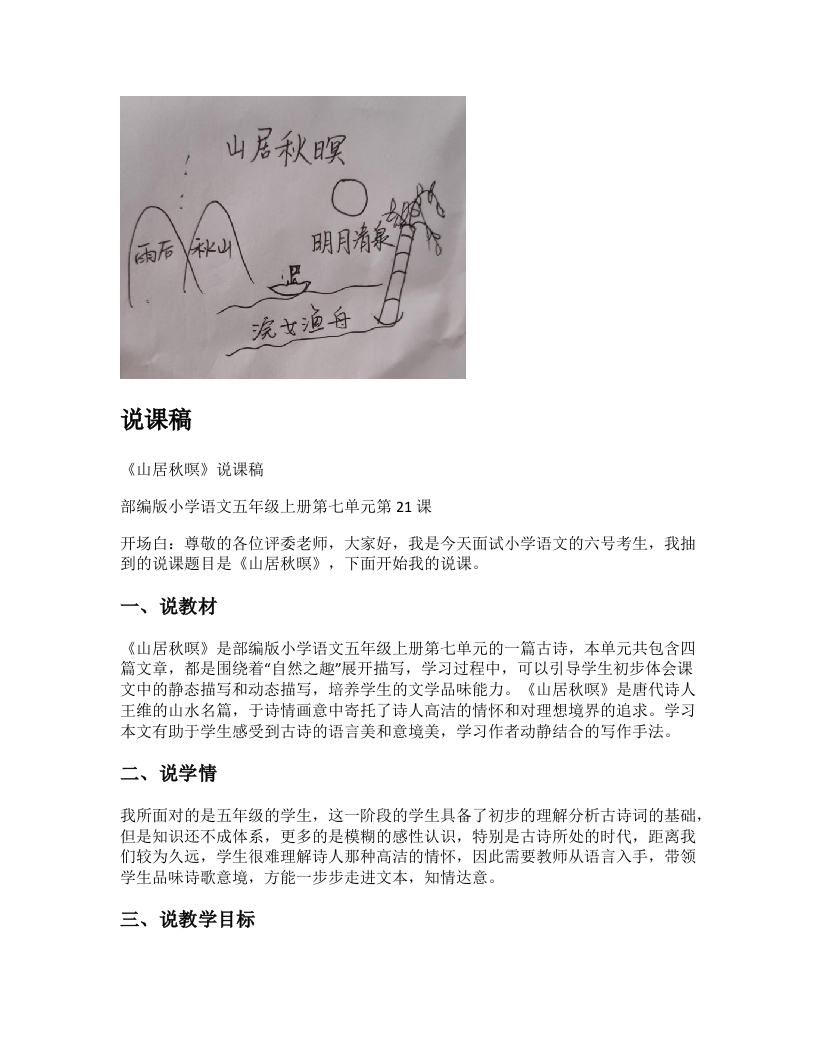 山居秋暝
雨后
秋山
明月清泉
浣女渔舟
说课稿
《山居秋暝》说课稿
部编版小学语文五年级上册第七单元第 21 课
开场白：尊敬的各位评委老师，大家好，我是今天面试小学语文的六号考生，我抽
到的说课题目是《山居秋暝》，下面开始我的说课。
一、说教材
《山居秋暝》是部编版小学语文五年级上册第七单元的一篇古诗，本单元共包含四
篇文章，都是围绕着“自然之趣”展开描写，学习过程中，可以引导学生初步体会课
文中的静态描写和动态描写，培养学生的文学品味能力。《山居秋暝》是唐代诗人
王维的山水名篇，于诗情画意中寄托了诗人高洁的情怀和对理想境界的追求。学习
本文有助于学生感受到古诗的语言美和意境美，学习作者动静结合的写作手法。
二、说学情
我所面对的是五年级的学生，这一阶段的学生具备了初步的理解分析古诗词的基础，
但是知识还不成体系，更多的是模糊的感性认识，特别是古诗所处的时代，距离我
们较为久远，学生很难理解诗人那种高洁的情怀，因此需要教师从语言入手，带领
学生品味诗歌意境，方能一步步走进文本，知情达意。
三、说教学目标